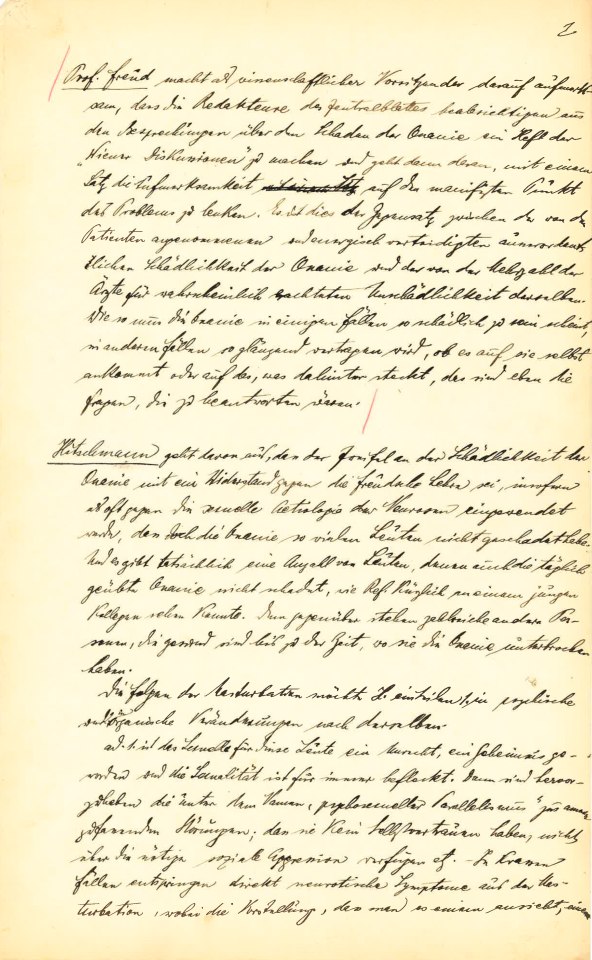 2
Prof. Freud macht als wissenschaftlicher Vorsitzender darauf aufmerk-
sam, dass die Redakteure des Zentralblattes beabsichtigen aus
den Besprechungen über den Schaden der Onanie ein Heft der
„Wiener Diskussionen" zu machen und geht dann daran, mit einem
Satz die Aufmerksamkeit auf den Punkt
des Problems zu lenken. Es ist dies der Gegensatz zwischen der von den
Patienten angenommenen und energisch verteidigten ausserordent-
lichen Schädlichkeit der Onanie und der von der Mehrzahl der
Ärzte für wahrscheinlich erachteten Unschädlichkeit derselben.
Wieso nun die Onanie in einigen Fällen so schädlich zu sein scheint,
in anderen Fällen so glänzend vertragen wird, ob es auf sie selbst
ankommt oder auf das, was dahinter steckt, das sind eben die
Fragen, die zu beantworten wären.
Hitschmann geht davon aus, dass der Zweifel an der Schädlichkeit der
Onanie mit ein Widerstand gegen die Freudsche Lehre sei, insofern
als oft gegen die sexuelle Aetiologie der Neurosen eingewendet
wurde, dass doch die Onanie so vielen Leuten nicht geschadet habe.
Und es gibt tatsächlich eine Anzahl von Leuten, denen auch die täglich
geübte Onanie nicht schadet, wie Ref. kürzlich an einem jungen
Kollegen sehen konnte. Dem gegenüber stehen zahlreiche andere Per-
sonen, die gesund sind bis zu der Zeit, wo sie die Onanie unterbrochen
haben.
Die Folgen der Masturbation möchte H. einteilen in psychische
und organische Veränderungen nach derselben.
ad. 1. ist das Sexuelle für diese Leute ein Unrecht, ein Geheimnis ge-
worden und die Sexualität ist für immer befleckt. Dann sind hervor-
zuheben die unter dem Namen „psychosexueller Parallelismus"
zufassenden Störungen; dass sie kein Selbstvertrauen haben, nicht
über die nötige soziale Aggression verfügen etc. - In
Fällen entspringen direkt neurotische Symptome aus der Mas-
turbation, wobei die Vorstellung, dass man es einem ansieht,